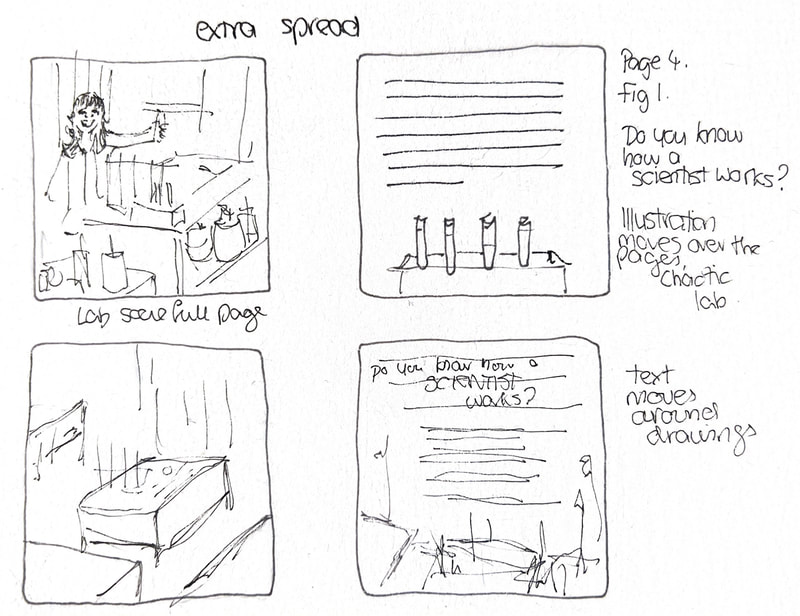 extra spread
Page 4.
fig 1.
Do you know
how a
scientist works?
Illustration
moves over the
pages.
Chaotic
lab
Lab scene full page
Do you know how a
SCIENTIST
works?
text
moves
around
drawings